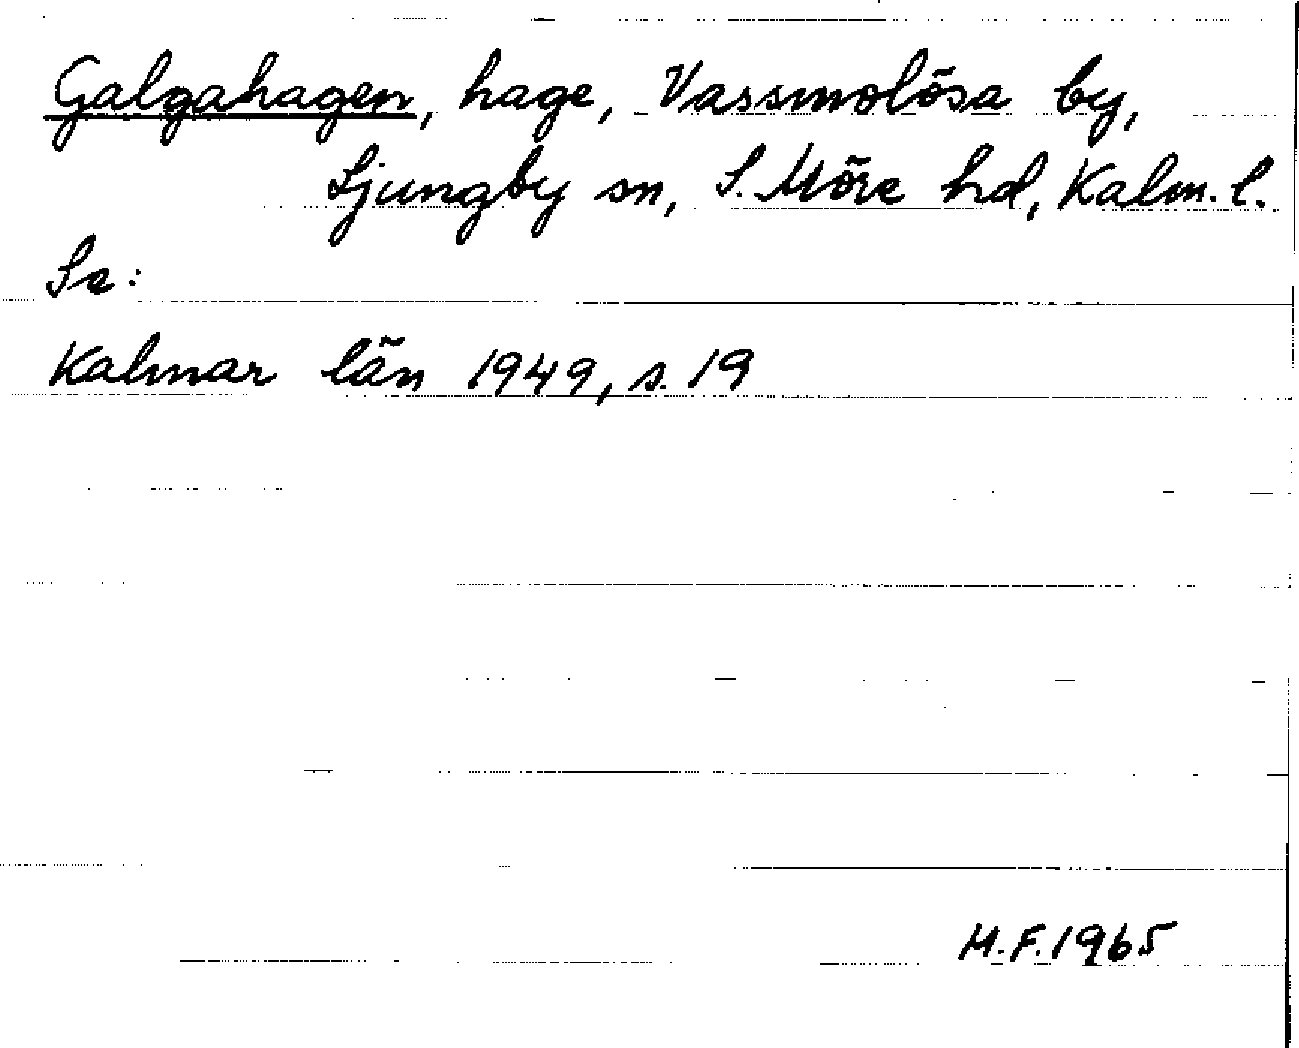 Galgahagen, hage, Vassmolösa by,
Ljungby sn, S. Möre hd, Kalm. l.
Se:
Kalmar län 1949, s. 19
M.F. 1965